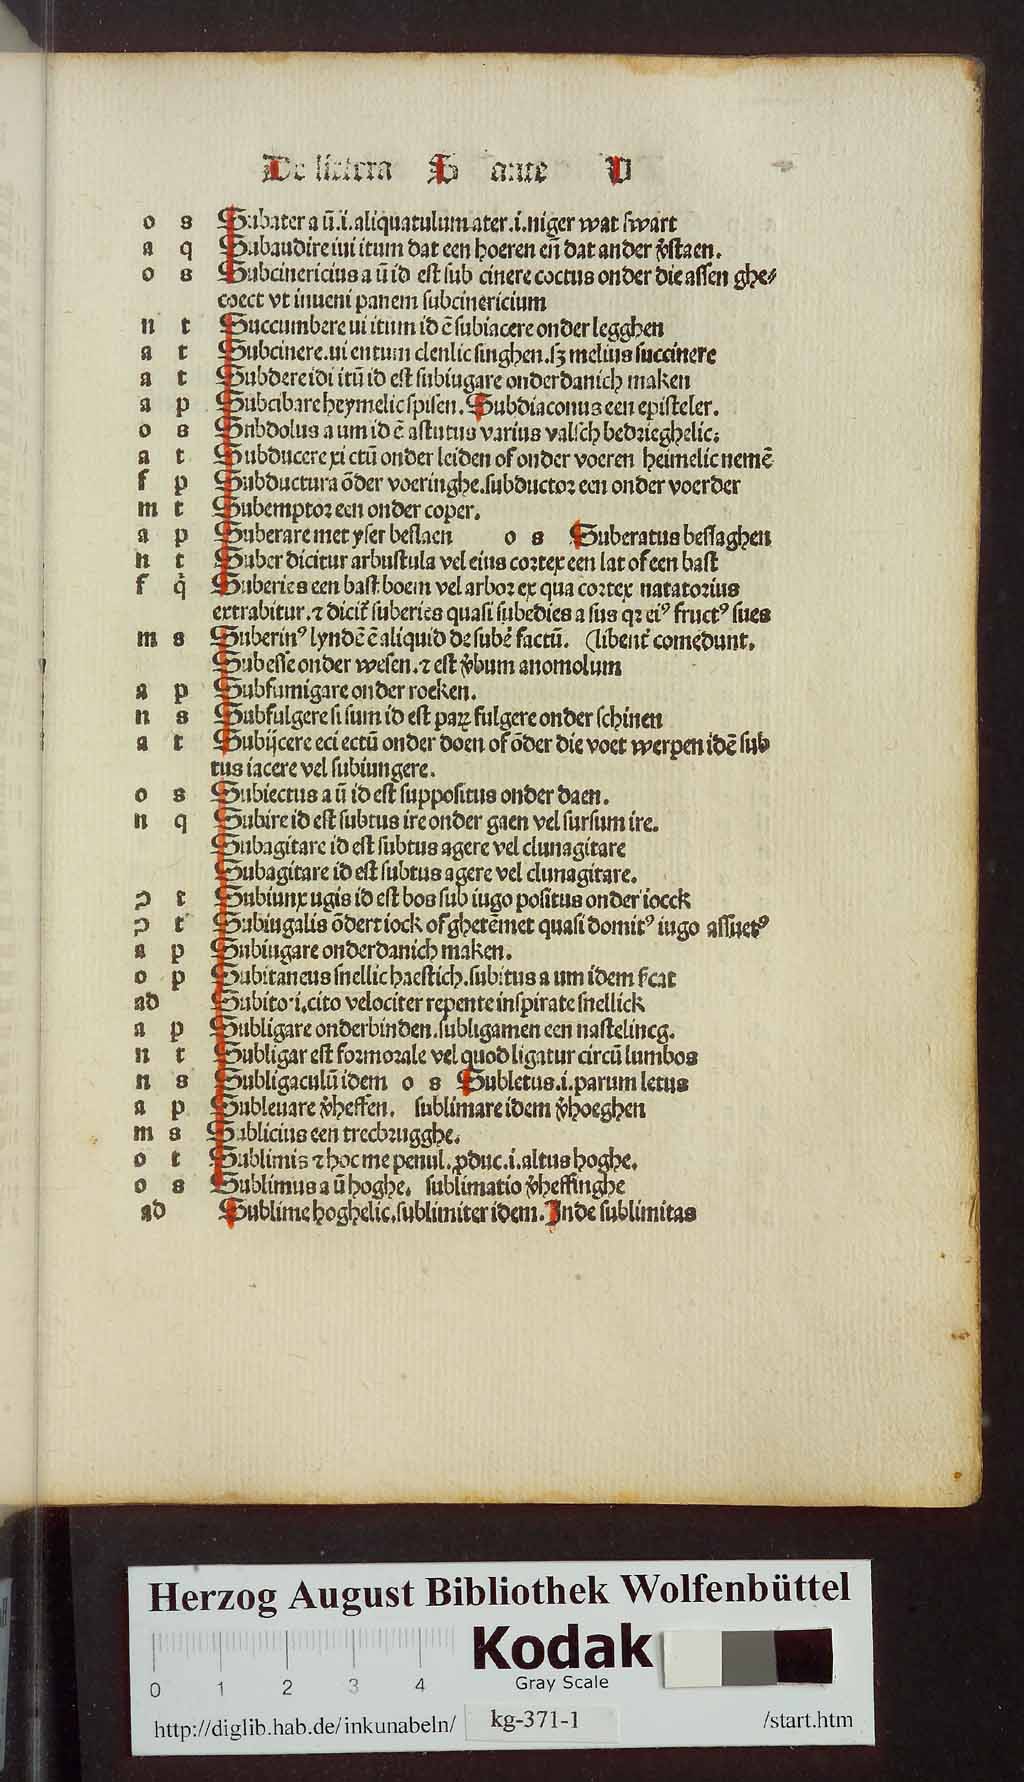 De littera S ante V
o s Subater a ū.i.aliquatulum ater.i.niger wat swart
a q Subaudire iui itum dat een hoeren eñ dat ander v̄staen.
o s Subcinericius a ū id est sub cinere coctus onder die assen ghe⸗
coect vt inueni panem subcinericium
n t Succumbere ui itum id ē subiacere onder legghen
a t Subcinere.ui entum clenlic singhen.sꝫ melius succinere
a t Subdere idi itū id est subiugare onderdanich maken
a p Subcibare heymelic spisen. Subdiaconus een episteler.
o s Snbdolus a um id ē astutus varius valsch bedrieghelic:
a t Subducere xi ctū onder leiden of onder voeren heimelic nemē
f p Subductura ōder voeringhe.subductor een onder voerder
m t Subemptor een onder coper.
a p Suberare met yser beslaen o s Suberatus beslaghen
n t Suber dicitur arbustula vel eius cortex een lat of een bast
f q̇ Suberies een bast boem vel arbor ex qua cortex natatorius
extrabitur.⁊ dicit̄ suberies quasi subedies a sus qꝛ eiꝰ fructꝰ sues
m s Suberinꝰ lyndē ē aliquid de sube̛ factū. (libent̛ comedunt.
Subesse onder wesen.⁊ est v̄bum anomolum
a p Subfumigare onder roeken.
n s Subfulgere si sum id est parꝝ fulgere onder schinen
a t Subijcere eci ectū onder doen of ōder die voet werpen idē sub
tus iacere vel subiungere.
o s Subiectus a ū id est suppositus onder daen.
n q Subire id est subtus ire onder gaen vel sursum ire.
Subagitare id est subtus agere vel clunagitare
Subagitare id est subtus agere vel clunagitare.
ꝯ t Subiunx ugis id est bos sub iugo positus onder iocck
ꝯ t Subiugalis ōdert iock of ghetēmet quasi domitꝰ iugo assuetꝰ
a p Subiugare onderdanich maken.
o p Subitaneus snellic haestich.subitus a um idem s̛cat
ad Subito.i.cito velociter repente inspirate snellick
a p Subligare onderbinden.subligamen een nastelincg.
n t Subligar est formorale vel quod ligatur circū lumbos
n s Subligaculū idem o s Subletus.i.parum letus
a p Subleuare v̄heffen. sublimare idem v̄hoeghen
m s Sublicius een trecbrugghe.
o t Sublimis ⁊ hoc me penul.ꝓduc.i.altus hoghe.
o s Sublimus a ū hoghe. sublimatio v̄heffinghe
ad Sublime hoghelic.sublimiter idem.Inde sublimitas
Herzog August Bibliothek Wolfenbüttel
Kodak
Gray Scale
0 1 2 3 4
http://diglib.hab.de/inkunabeln/ kg-371-1 /start.htm